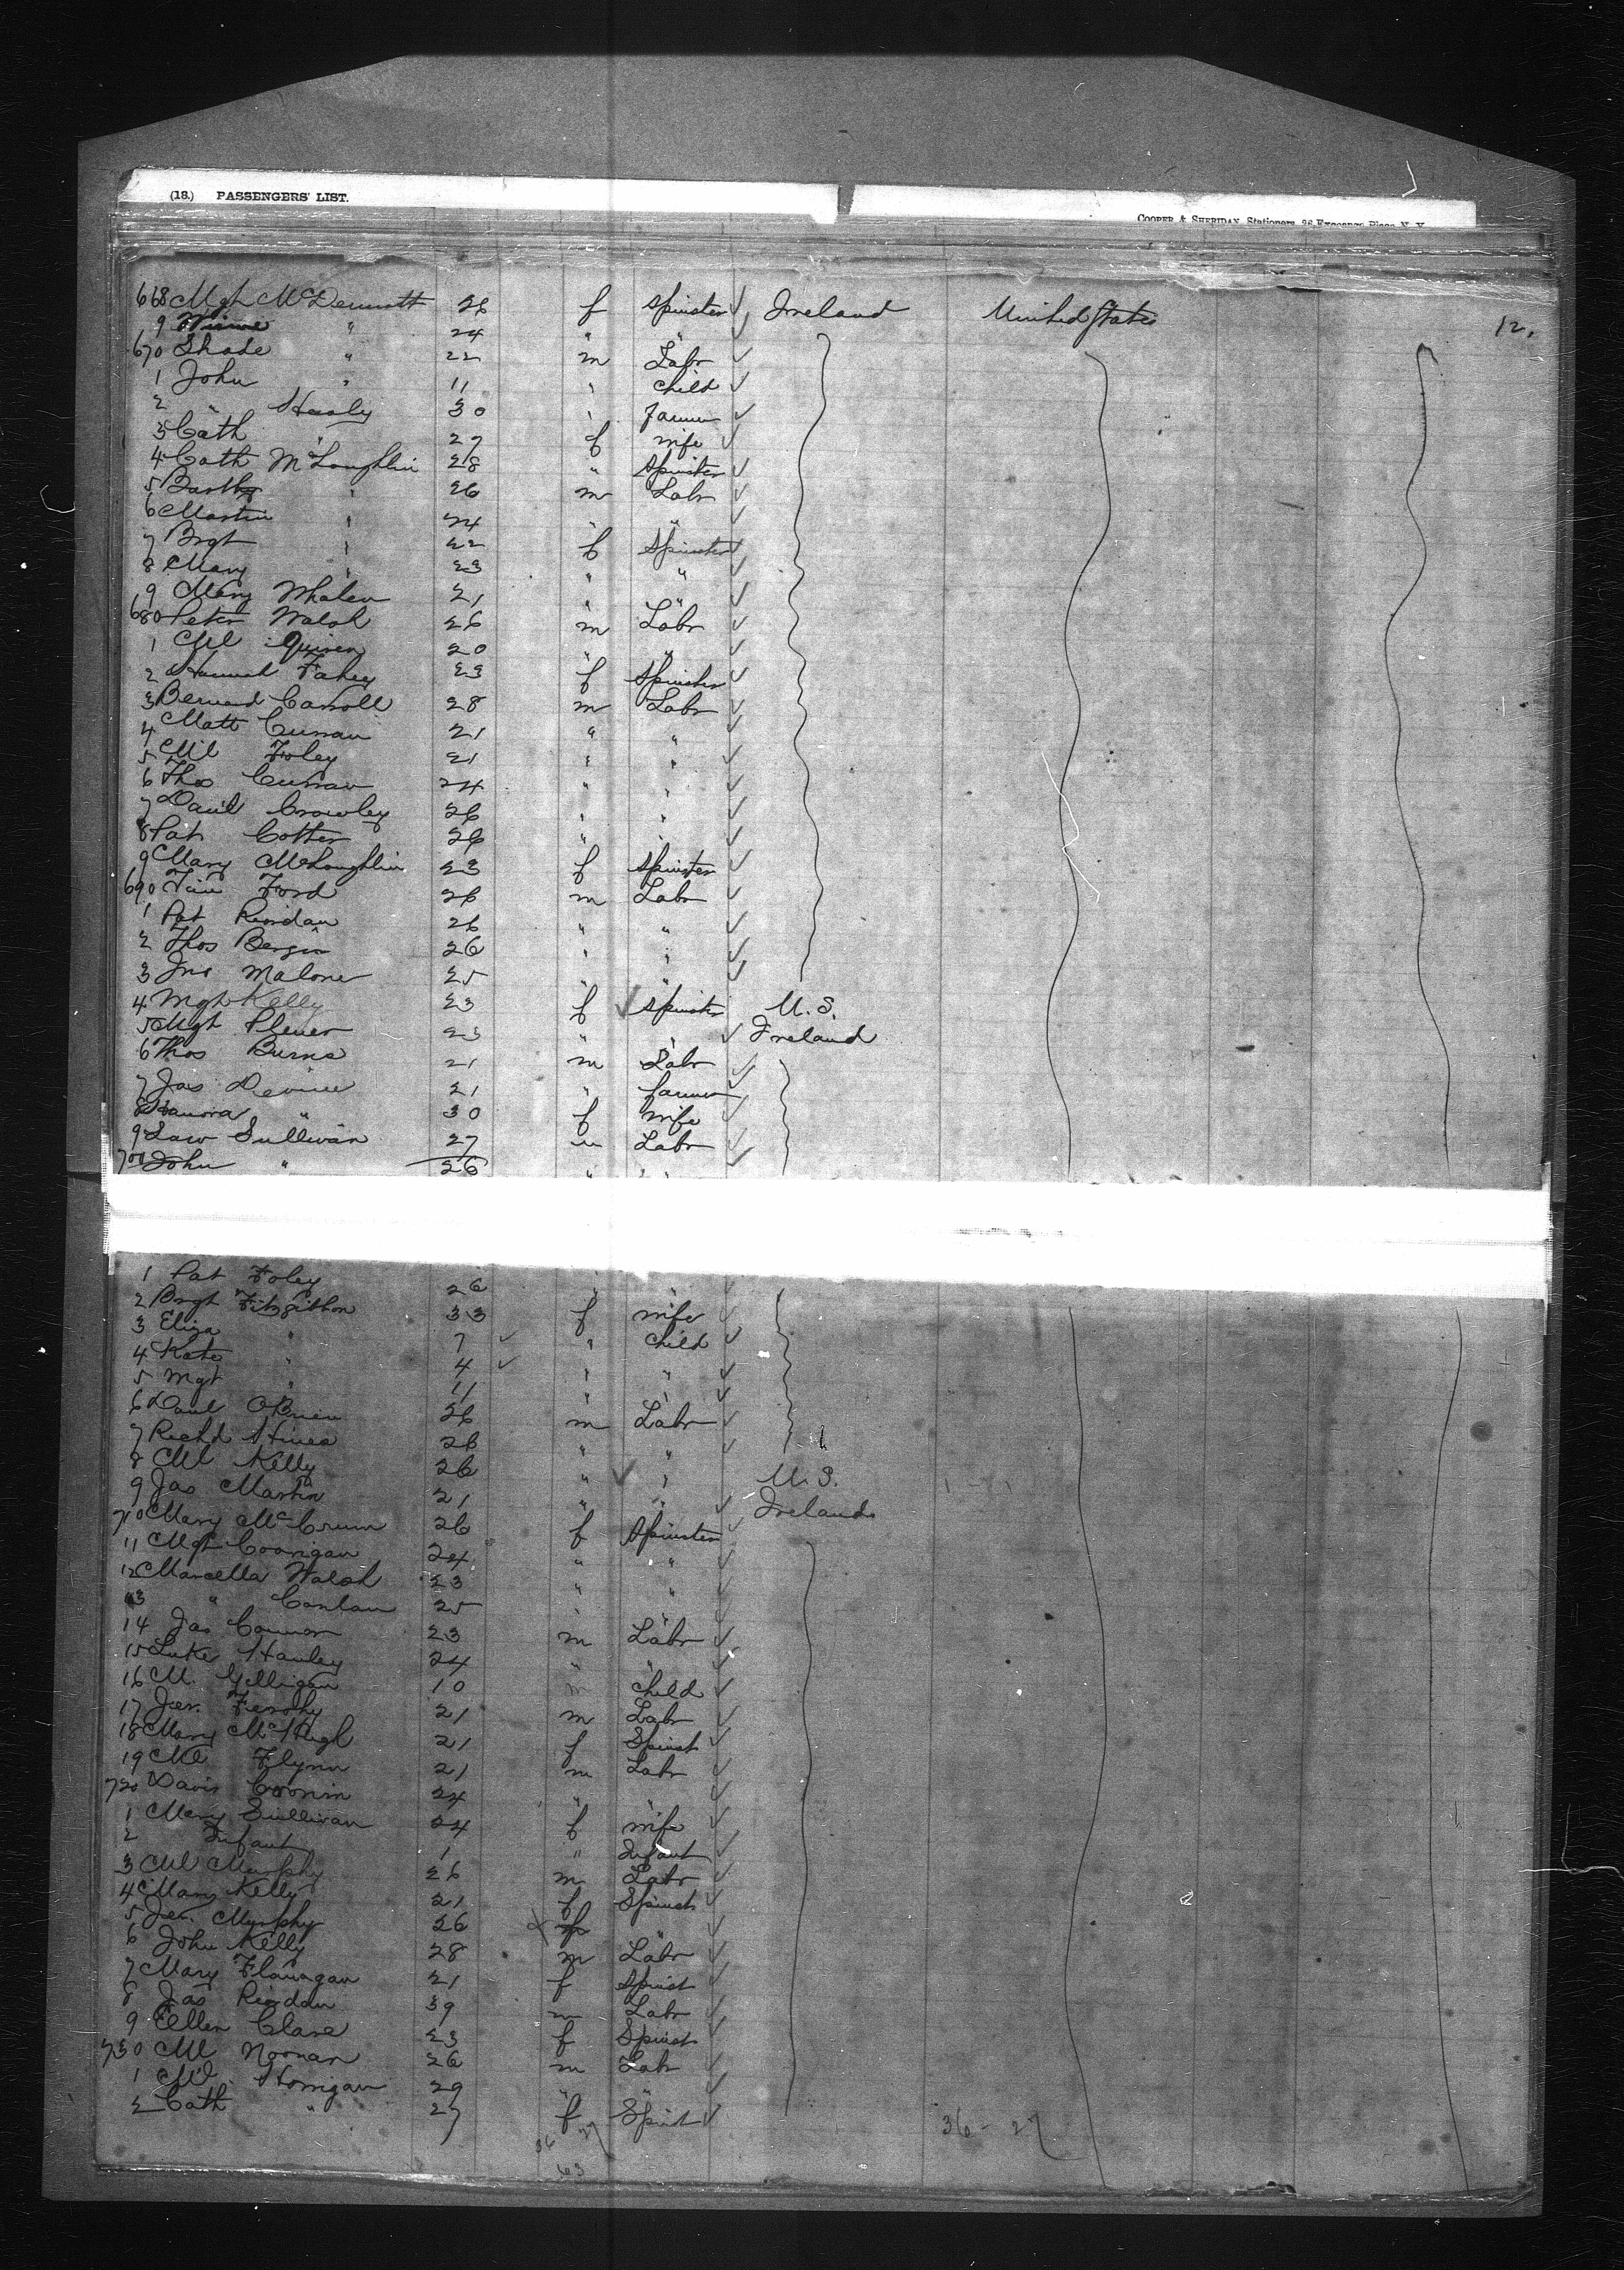 (18.) PASSENGERS' LIST.
COOPER & SHERIDAN, Stationers, 26 Exchange Place N. Y.
668 Mgt McDermott 26 f Spinster Ireland United States 12.
9 " 24 " "
670 " 22 m Labr
1 John " 11 " child
2 " Healy 30 " Farmer
3 Cath " 27 f wife
4 Cath McLoughlin 28 " Spinster
5 " 26 m Labr
6 Martin " 24 " "
7 Brgt " 22 f Spinster
8 Mary " 23 " "
9 Mary Whalen 21 " "
680 Peter Walsh 26 m Labr
1 Ml 20 " "
2 Hannah Fahey 23 f Spinster
3 Bernard Carroll 28 m Labr
4 Matt Curran 21 " "
5 Ml Foley 21 " "
6 Thos Curran 24 " "
7 Danl Crowley 26 " "
8 Pat Cotter 26 " "
9 Mary McLoughlin 23 f Spinster
690 Tim Ford 26 m Labr
1 Pat Riordan 26 " "
2 Thos Bergin 26 " "
3 Jno Malone 25 " "
4 Mgt Kelly 23 f Spinster U.S.
5 Mgt 23 " " Ireland
6 Thos Burns 21 m Labr
7 Jas Devine 21 " farmer
8 Hanora " 30 f wife
9 Law Sullivan 27 m Labr
700 John " 26 " "
1 Pat Foley 26 " "
2 Brgt Fitzgibbon 33 f wife
3 Eliza " 7 " child
4 Kate " 4 " "
5 Mgt " 11 " "
6 Danl OBrien 26 m Labr
7 Richd Hines 26 " "
8 Ml Kelly 26 " " U.S.
9 Jas Martin 21 " " Ireland
710 Mary McCrum 26 f Spinster
11 Mgt Coorigan 24 " "
12 Marcella Walsh 23 " "
13 " Conlan 25 " "
14 Jas Connor 23 m Labr
15 Luke Hanley 24 " "
16 M. Gilligan 10 m child
17 Jer. 21 m Labr
18 Mary McHugh 21 f Spinst
19 Ml Flynn 21 m Labr
720 Davis Cronin 24 " "
1 Mary Sullivan 24 f wife
2 Infant 1 " Infant
3 Ml Murphy 26 m Labr
4 Mary Kelly 21 f Spinst
5 Jer. Murphy 26 "
6 John Kelly 28 m Labr
7 Mary Flanagan 21 f Spinst
8 Jas Riordan 39 m Labr
9 Ellen Clare 23 f Spinst
730 Ml Noonan 26 m Labr
1 Ml Horrigan 29 " "
2 Cath " 27 f Spinst
36 27 36 - 27
63